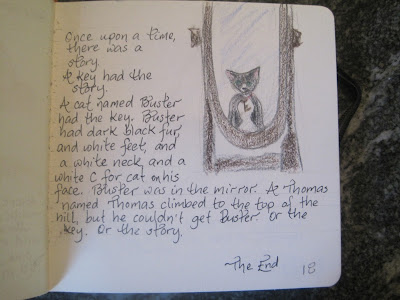 Once upon a time,
there was a
story.
A key had the
story.
A cat named Buster
had the key. Buster
had dark black fur,
and white feet, and
a white neck, and a
white C for cat on his
face. Buster was in the mirror. A Thomas
named Thomas climbed to the top of the
hill, but he couldn't get Buster. Or the
key. Or the story.
~The End
18